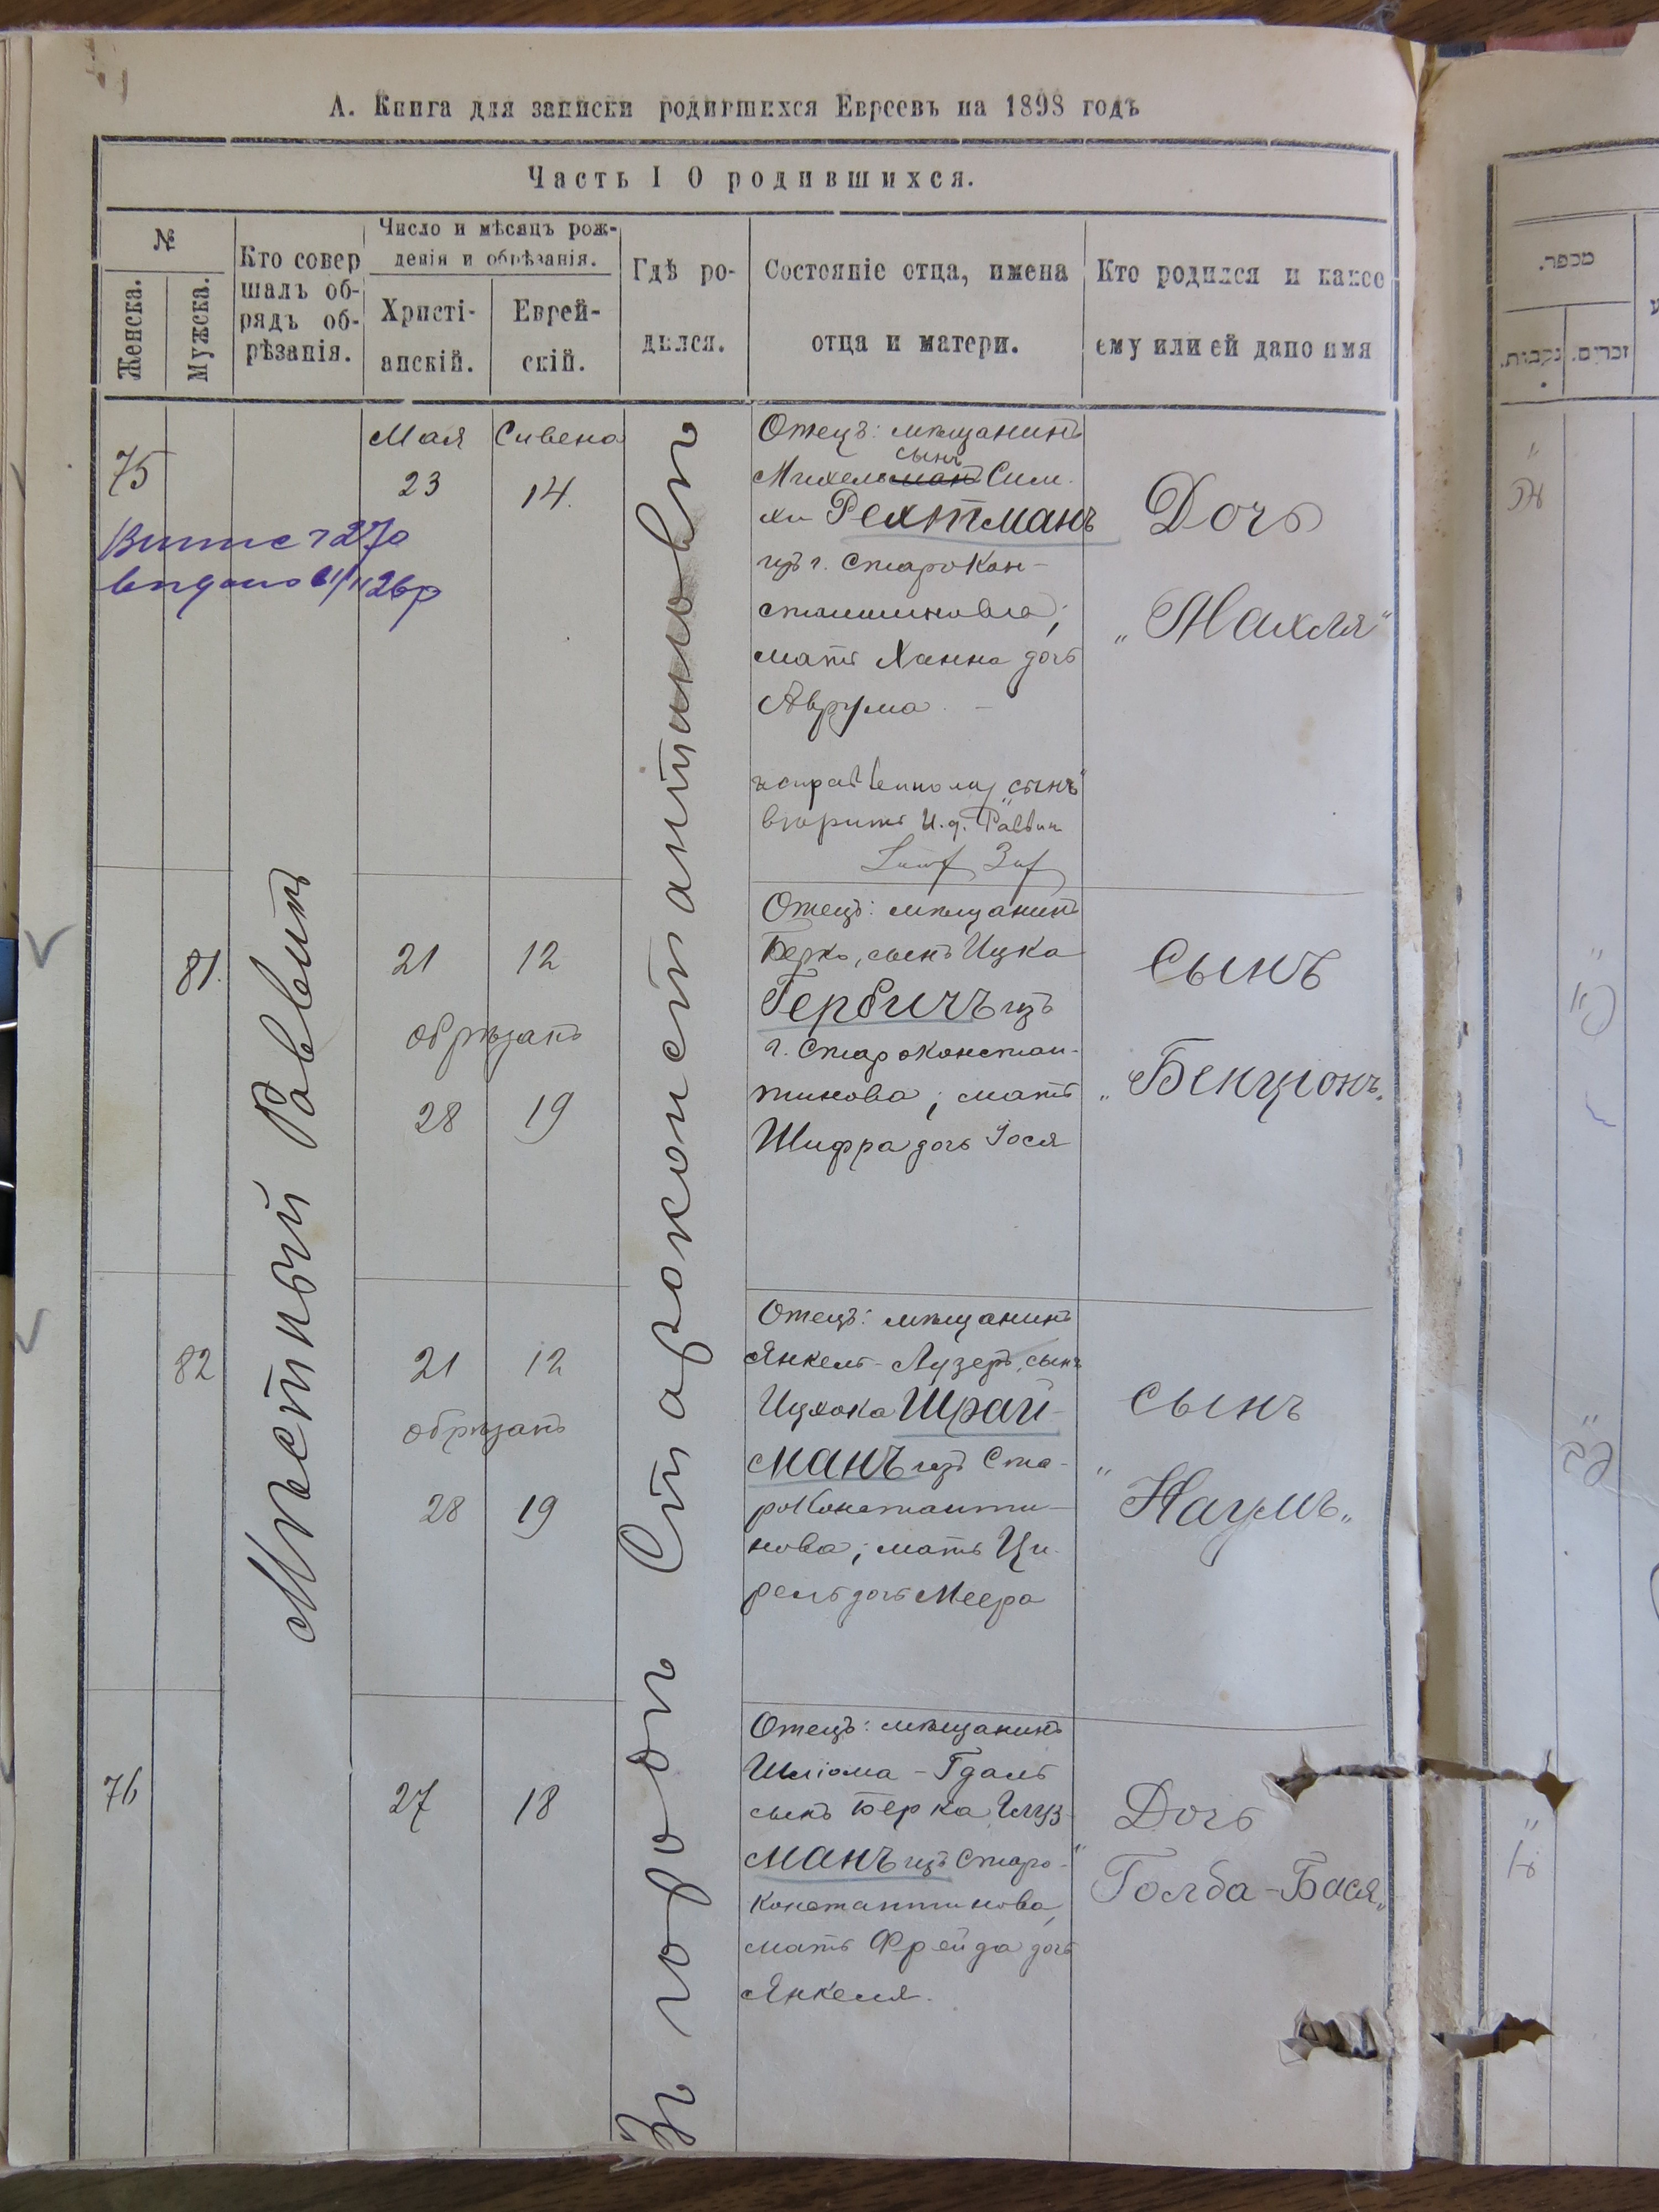 А. Книга для записки родившихся Евреевъ на 1898 годъ
Часть I О родившихся.
№
Женска.
Мужска.
Кто совер
шалъ об-
рядъ об-
рѣзанія.
Число и мѣсяцъ рож-
денія и обрѣзанія.
Христі-
анскій.
Еврей-
скій.
Гдѣ ро-
дился.
Состояніе отца, имена
отца и матери.
Кто родился и какое
ему или ей дано имя
Мѣстный Раввинъ
Въ городѣ Староконстантиновѣ
75
Мая
23
Сивена
14.
Отецъ: мѣщанинъ
сынъ
Михель Сим-
хи Рехтманъ
изъ г. Старокон-
стантинова;
мать Ханна дочь
Аврума. –
исправленному „сынъ“
вѣрить И. д. Раввин
Дочь
„Нахля“
81.
21
12
обрѣзанъ
28
19
Отецъ: мѣщанинъ
Берко, сынъ Ицка
Гербичъ изъ
г. Староконстан-
тинова; мать
Шифра дочь Іося
Сынъ
„Бенціонъ„
82
21
12
обрѣзанъ
28
19
Отецъ: мѣщанинъ
Янкель-Лузеръ, сынъ
Ицхока Шрай-
манъ изъ Ста-
роконстанти-
нова; мать Ци-
рель дочь Меера
Сынъ
„Наумъ„
76
27
18
Отецъ: мѣщанинъ
Шліома-Гдаль
сынъ Берка
манъ изъ Старо-
константинова,
мать Фрейда дочь
Янкеля.
Дочь
„Голда-Бася„
מספר.
נקבות.
זכרים.